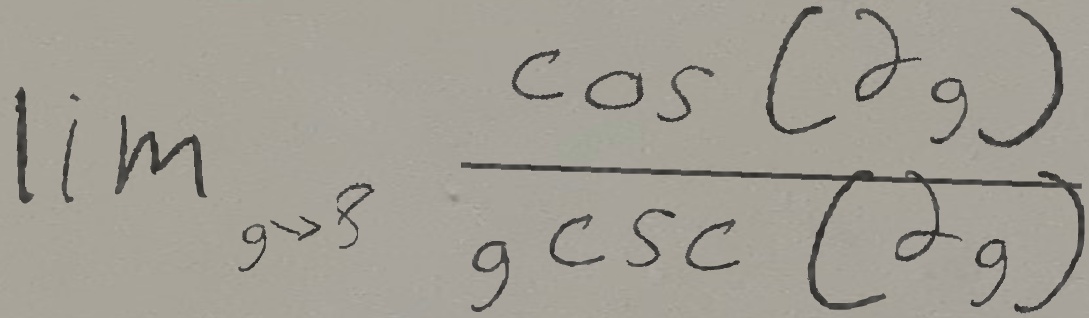 \lim_{g \to 8} \frac{\cos(2g)}{g \csc(2g)}